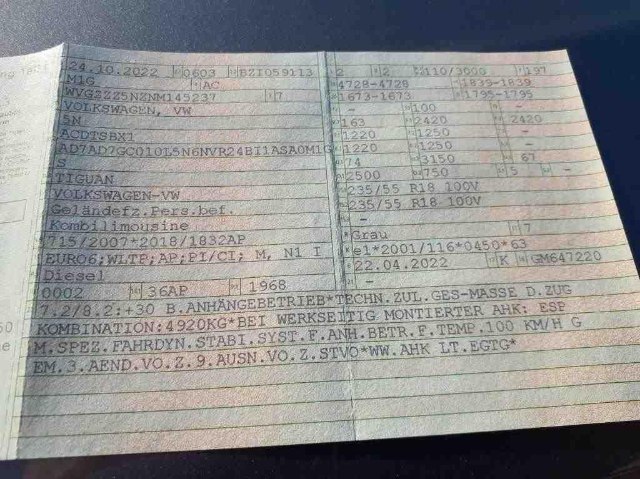 24.10.2022 0603 BZI059113 2 2 110/3000 197
M1G AC 4728-4728 1835-1839
WVGZZZ5NZNM145237 7 1673-1673 1795-1795
VOLKSWAGEN, VW - 100 -
5N 163 2420 2420
ACDTSBX1 1220 1250 -
AD7AD7GC010L5N6NVR24BI1ASA0M1G 1220 1250 -
S 74 3150 67
TIGUAN 2500 750 5 -
VOLKSWAGEN-VW 235/55 R18 100V
Geländefz.Pers.bef. 235/55 R18 100V
Kombilimousine -
715/2007*2018/1832AP *Grau 7
EURO6;WLTP;AP;PI/CI; M, N1 I e1*2001/116*0450*63
Diesel 22.04.2022 K GM647220
0002 36AP 1968
7.2/8.2:+30 B.ANHÄNGEBETRIEB*TECHN.ZUL.GES-MASSE D.ZUG
KOMBINATION:4920KG*BEI WERKSEITIG MONTIERTER AHK: ESP
M.SPEZ.FAHRDYN.STABI.SYST.F.ANH.BETR.F.TEMP.100 KM/H G
EM.3.AEND.VO.Z.9.AUSN.VO.Z.STVO*WW.AHK LT.EGTG*